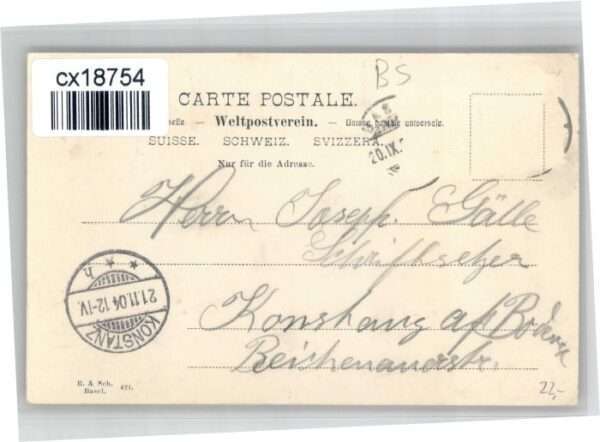 cx18754
BS
CARTE POSTALE.
Weltpostverein. — Unione postale universale.
SUISSE. SCHWEIZ. SVIZZERA.
Nur für die Adresse.
20.IX.
Herrn Joseph Gälle
Schriftsetzer
Konstanz a/ Bodensee
Reichenauerstr.
KONSTANZ
21.11.04.12-1V.
h
R. & Sch.
Basel. 421.
22,-